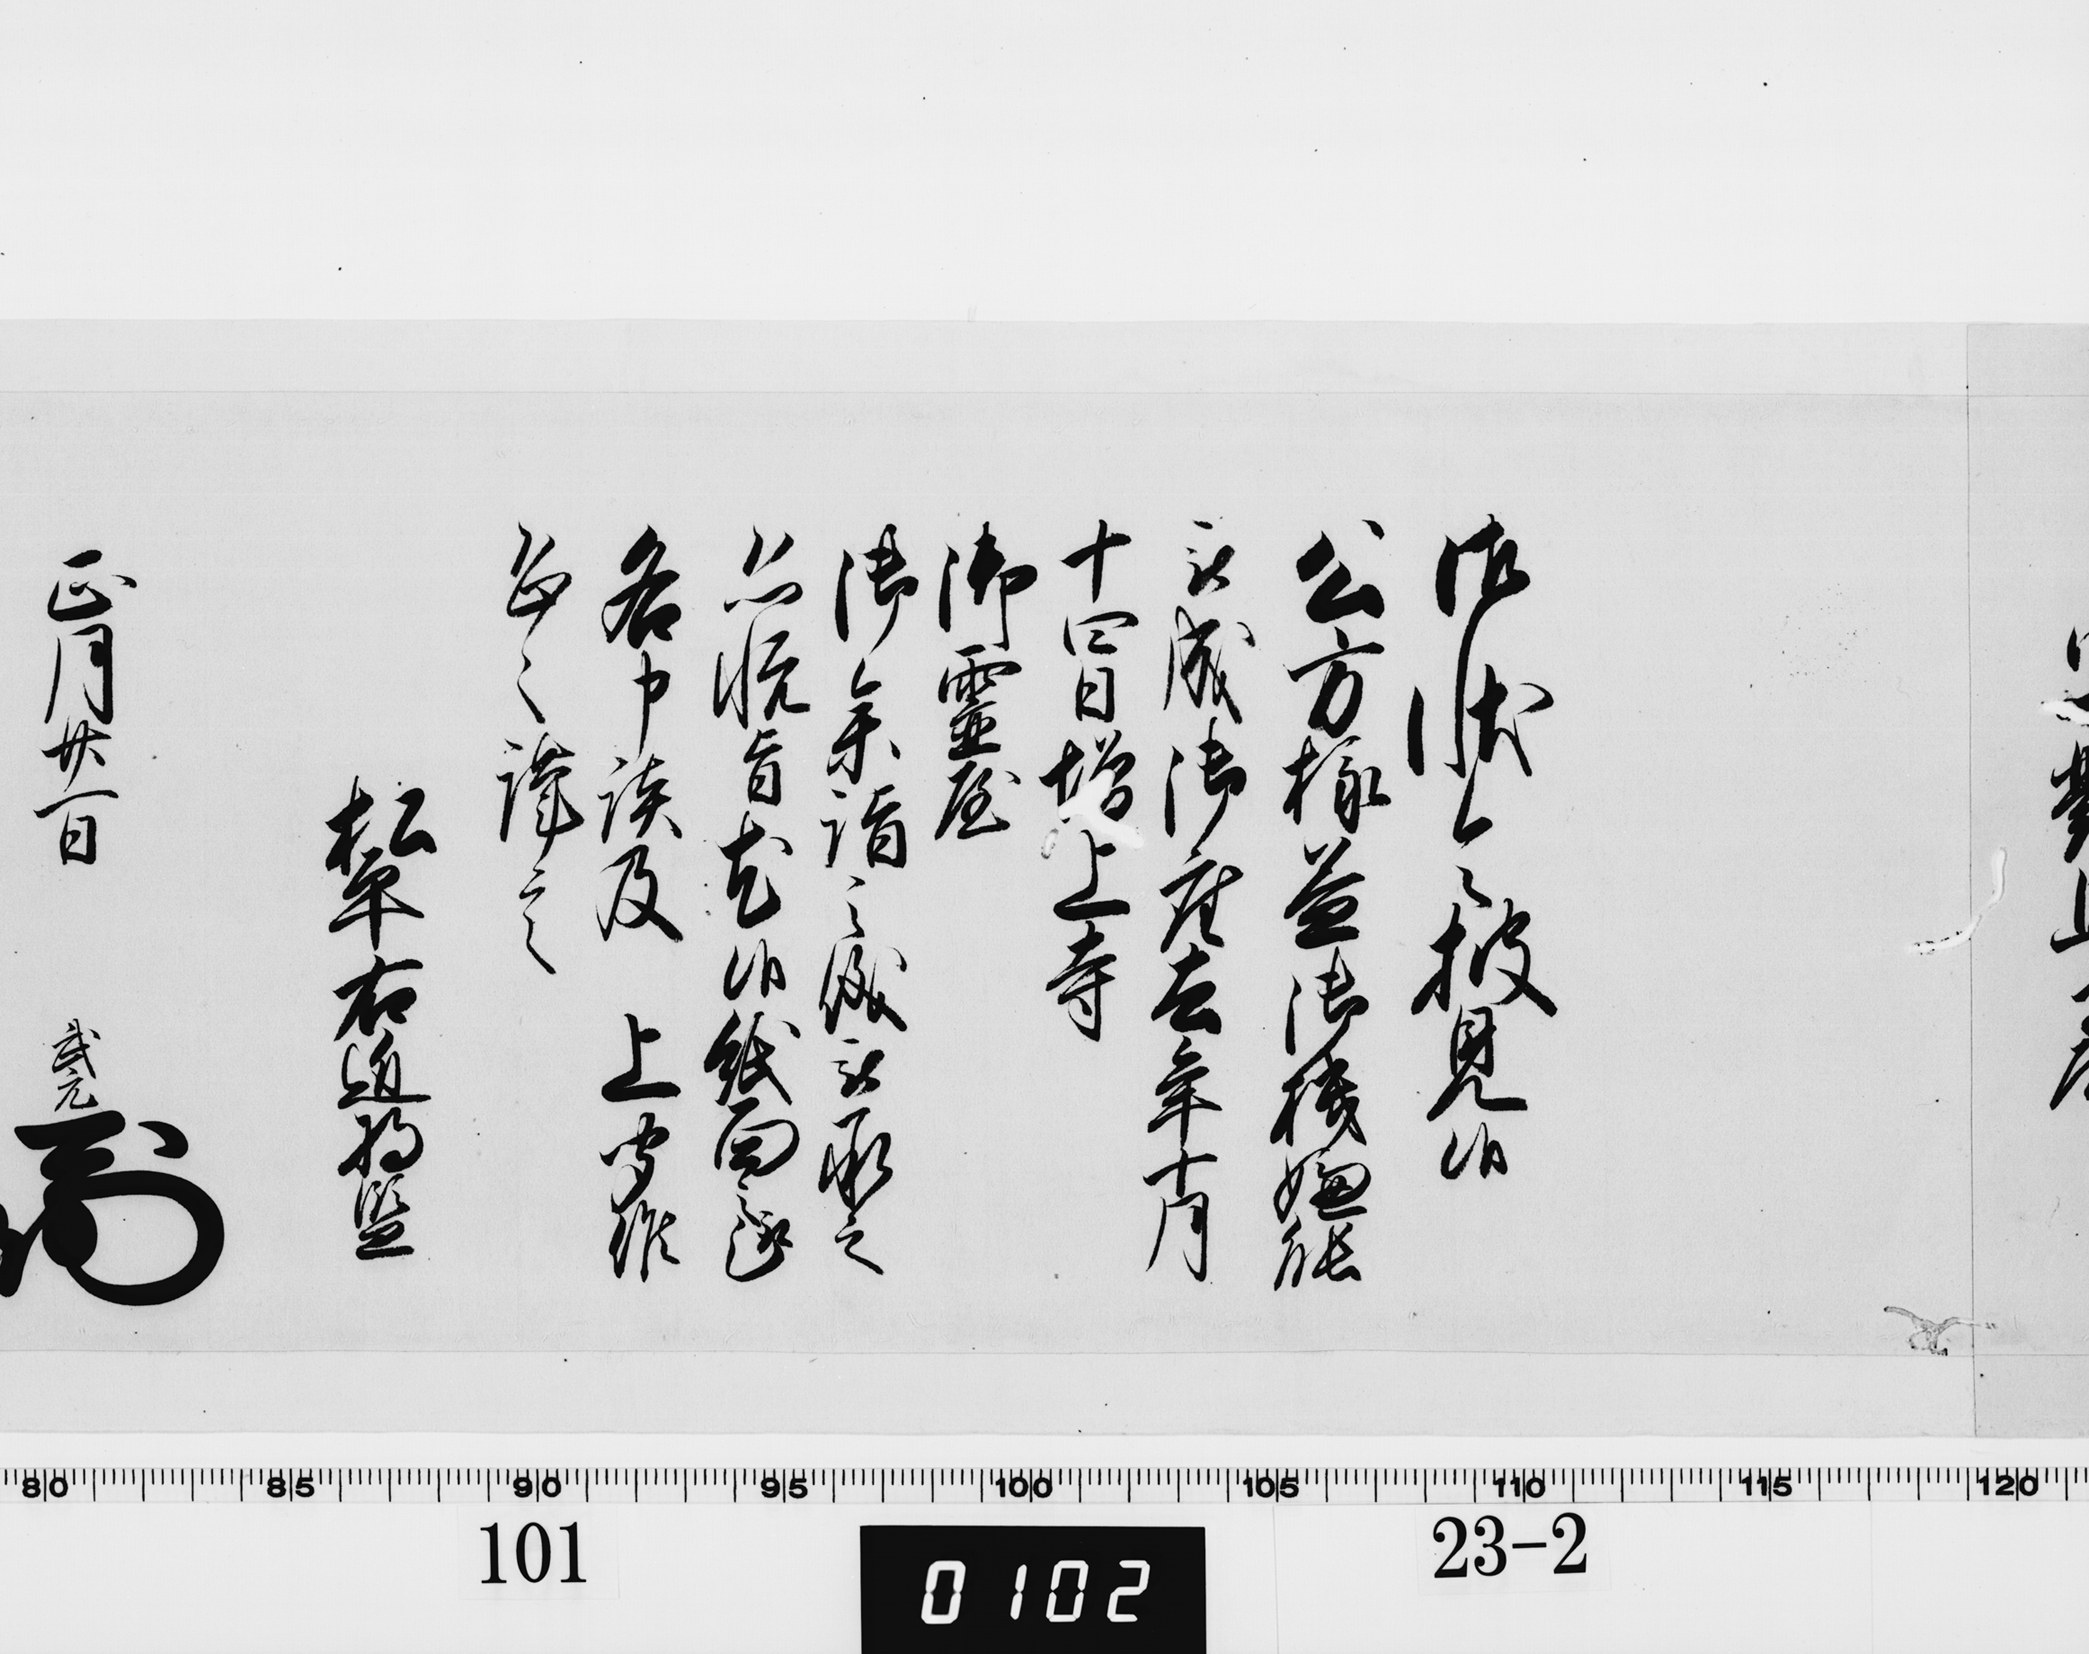 御状令披見候
公方様益御機嫌能
被成御座去年十月
十四日増上寺
御霊屋
御参詣之儀被承之
恐悦旨尤候紙面之趣
各申談及 上聞候
恐々謹言
松平右近将監
正月廿一日 武元
80 85 90 95 100 105 110 115 120
101 0102 23-2